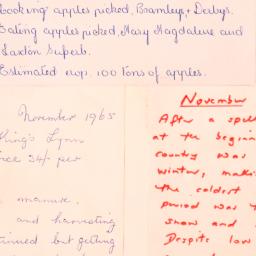 Cooking apples picked, Bramley, + Derbys.
Eating apples picked, Mary Magdalene and
Laxton Superb.
Estimated crop. 100 tons of apples.
November 1965
King's Lynn
34/- per
manure.
and harvesting
but getting
November
After a spell
at the beginn
country was
winter, mak
the coldest
period was t
snow and
Despite low